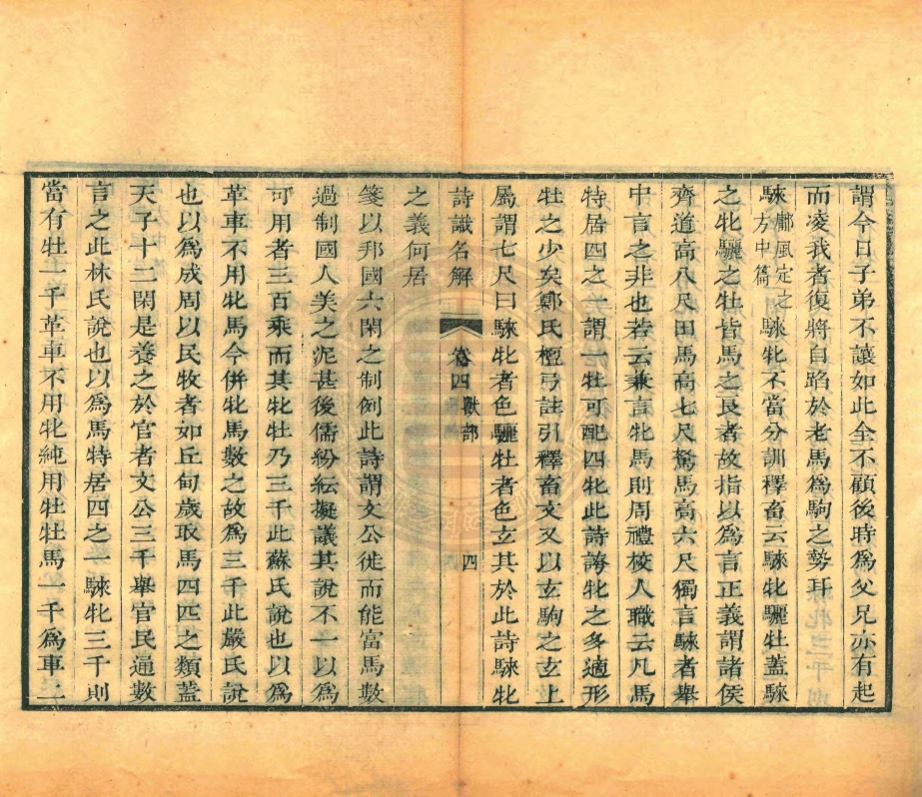 謂今日子弟不讓如此全不顧後時爲父兄亦有起
而凌我者復將自蹈於老馬爲駒之勢耳
騋鄘風定之方中篇騋牝不當分訓釋畜云騋牝驪牡蓋騋
之牝驪之牡皆馬之良者故指以爲言正義謂諸侯
齊道高八尺田馬高七尺駑馬高六尺獨言騋者舉
中言之非也若云兼言牝馬則周禮校人職云凡馬
特居四之一謂一牡可配四牝此詩誇牝之多適形
牡之少矣鄭氏檀弓註引釋畜文又以玄駒之玄上
屬謂七尺曰騋牝者色驪牡者色玄其於此詩騋牝
詩識名解 卷四獸部 四
之義何居
箋以邦國六閑之制例此詩謂文公徙而能富馬數
過制國人美之泥甚後儒紛紜擬議其說不一以爲
可用者三百乘而其牝牡乃三千此蘇氏說也以爲
革車不用牝馬今併牝馬數之故爲三千此嚴氏說
也以爲成周以民牧者如丘甸歲取馬四匹之類蓋
天子十二閑是養之於官者文公三千舉官民通數
言之此林氏說也以爲馬特居四之一騋牝三千則
當有牡一千革車不用牝純用牡牡馬一千爲車二